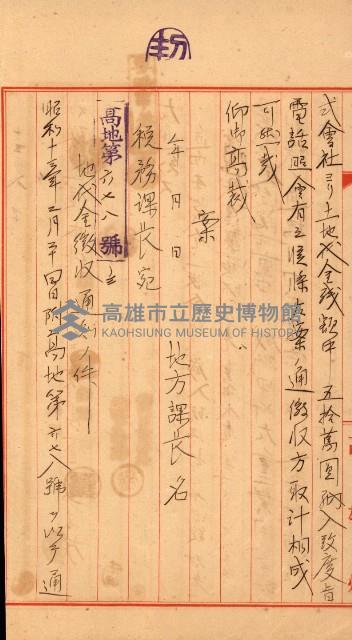 式會社ヨリ土地代金残額中五拾萬圓納入致度旨
電話照會有之候條左案ノ通徴収方取計相成
可然哉
仰御高裁
案
年月日
地方課長名
税務課長宛
高地第六七八號ノ三
地代金徴収
件
昭和十三年二月二十四日附高地第六七八號ヲ以テ通
高雄市立歷史博物館
KAOHSIUNG MUSEUM OF HISTORY